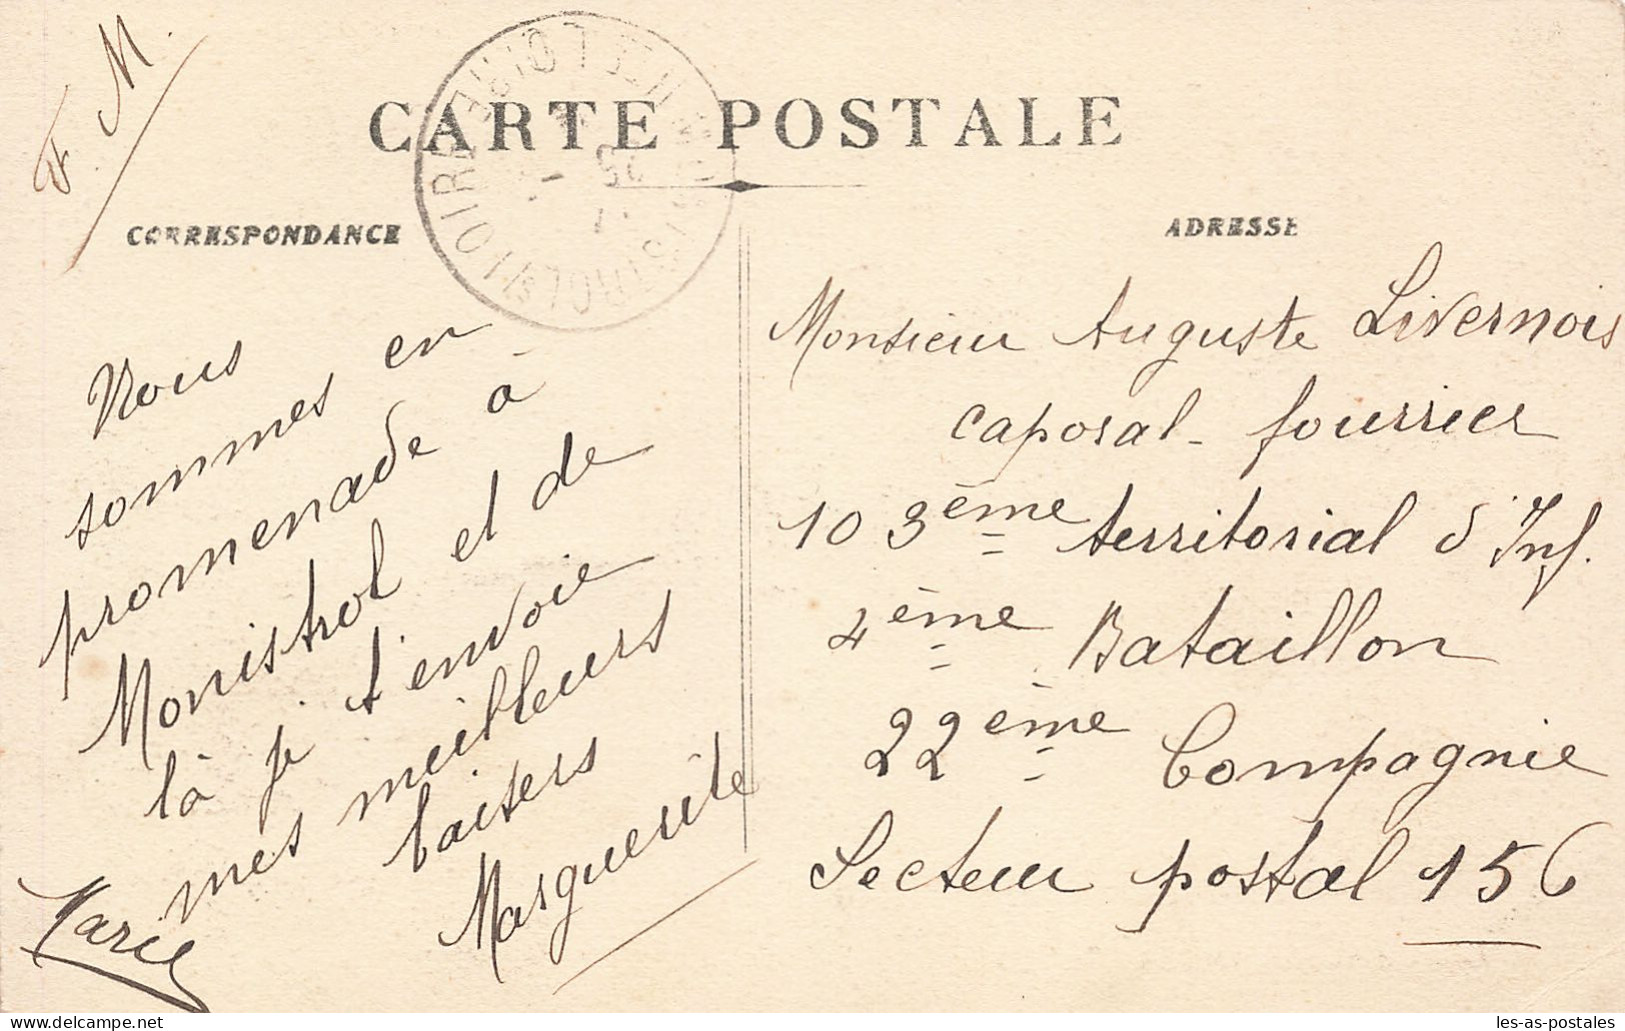 F. M.
CARTE POSTALE
CORRESPONDANCE
ADRESSE
Nous
sommes en
promenade à
Monistrol et de
là je t'envoie
mes meilleurs
baisers
Marguerite
Marie
Monsieur Auguste Livernois
caporal-fourrier
103ème territorial d'Inf.
4ème Bataillon
22ème Compagnie
Secteur postal 156
les-as-postales
www.delcampe.net